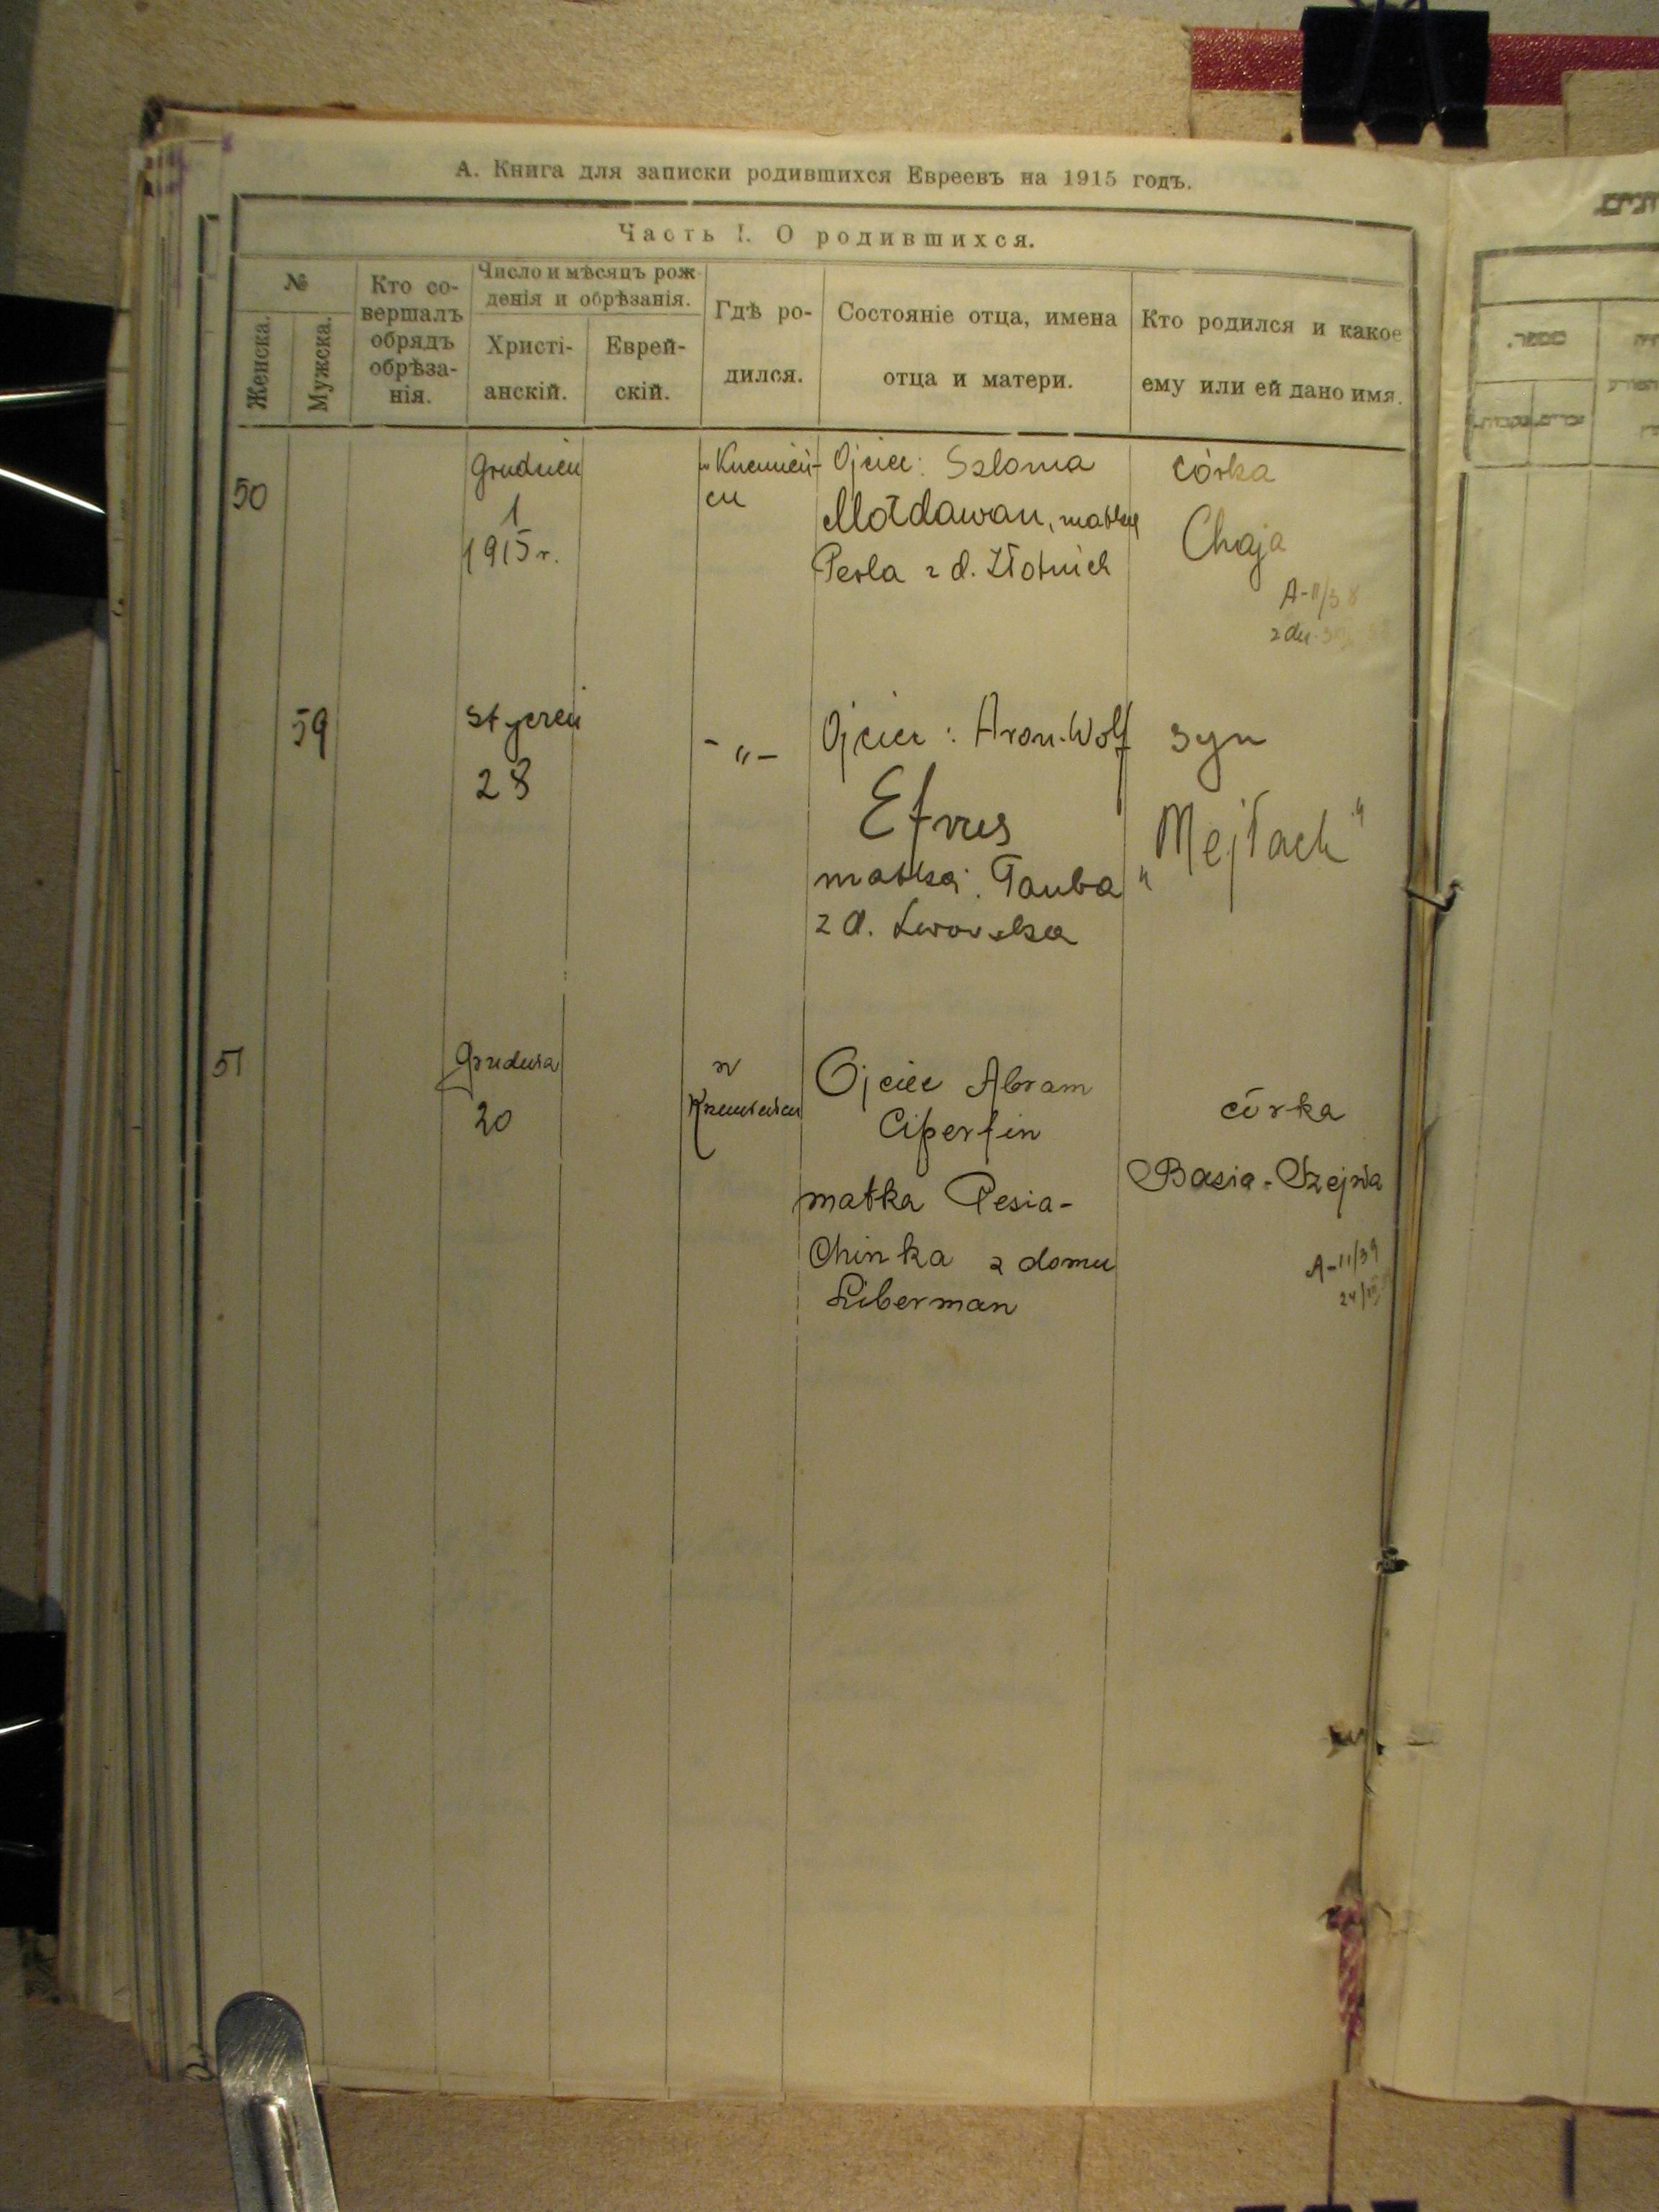 А. Книга для записки родившихся Евреевъ на 1915 годъ.
Часть I. О родившихся.
№
Женска.
Мужска.
Кто со-
вершалъ
обрядъ
обрѣза-
нія.
Число и мѣсяцъ рож
денія и обрѣзанія.
Христі-
анскій.
Еврей-
скій.
Гдѣ ро-
дился.
Состояніе отца, имена
отца и матери.
Кто родился и какое
ему или ей дано имя.
50
Grudzień
1
1915 r.
Ojciec: Szloma
Mołdawan, matka
Perla z d. Złotnick
córka
Chaja
A-11/38
59
Styczeń
28
-„-
Ojciec: Aron-Wolf
Efrus
matka: Tauba
z d. Lwowska
syn
„Mejłach"
51
Grudnia
20
w
Krzemieńcu
Ojciec Abram
Ciperfin
matka Pesia-
Chinka z domu
Liberman
córka
Basia-Szejwa
A-11/39